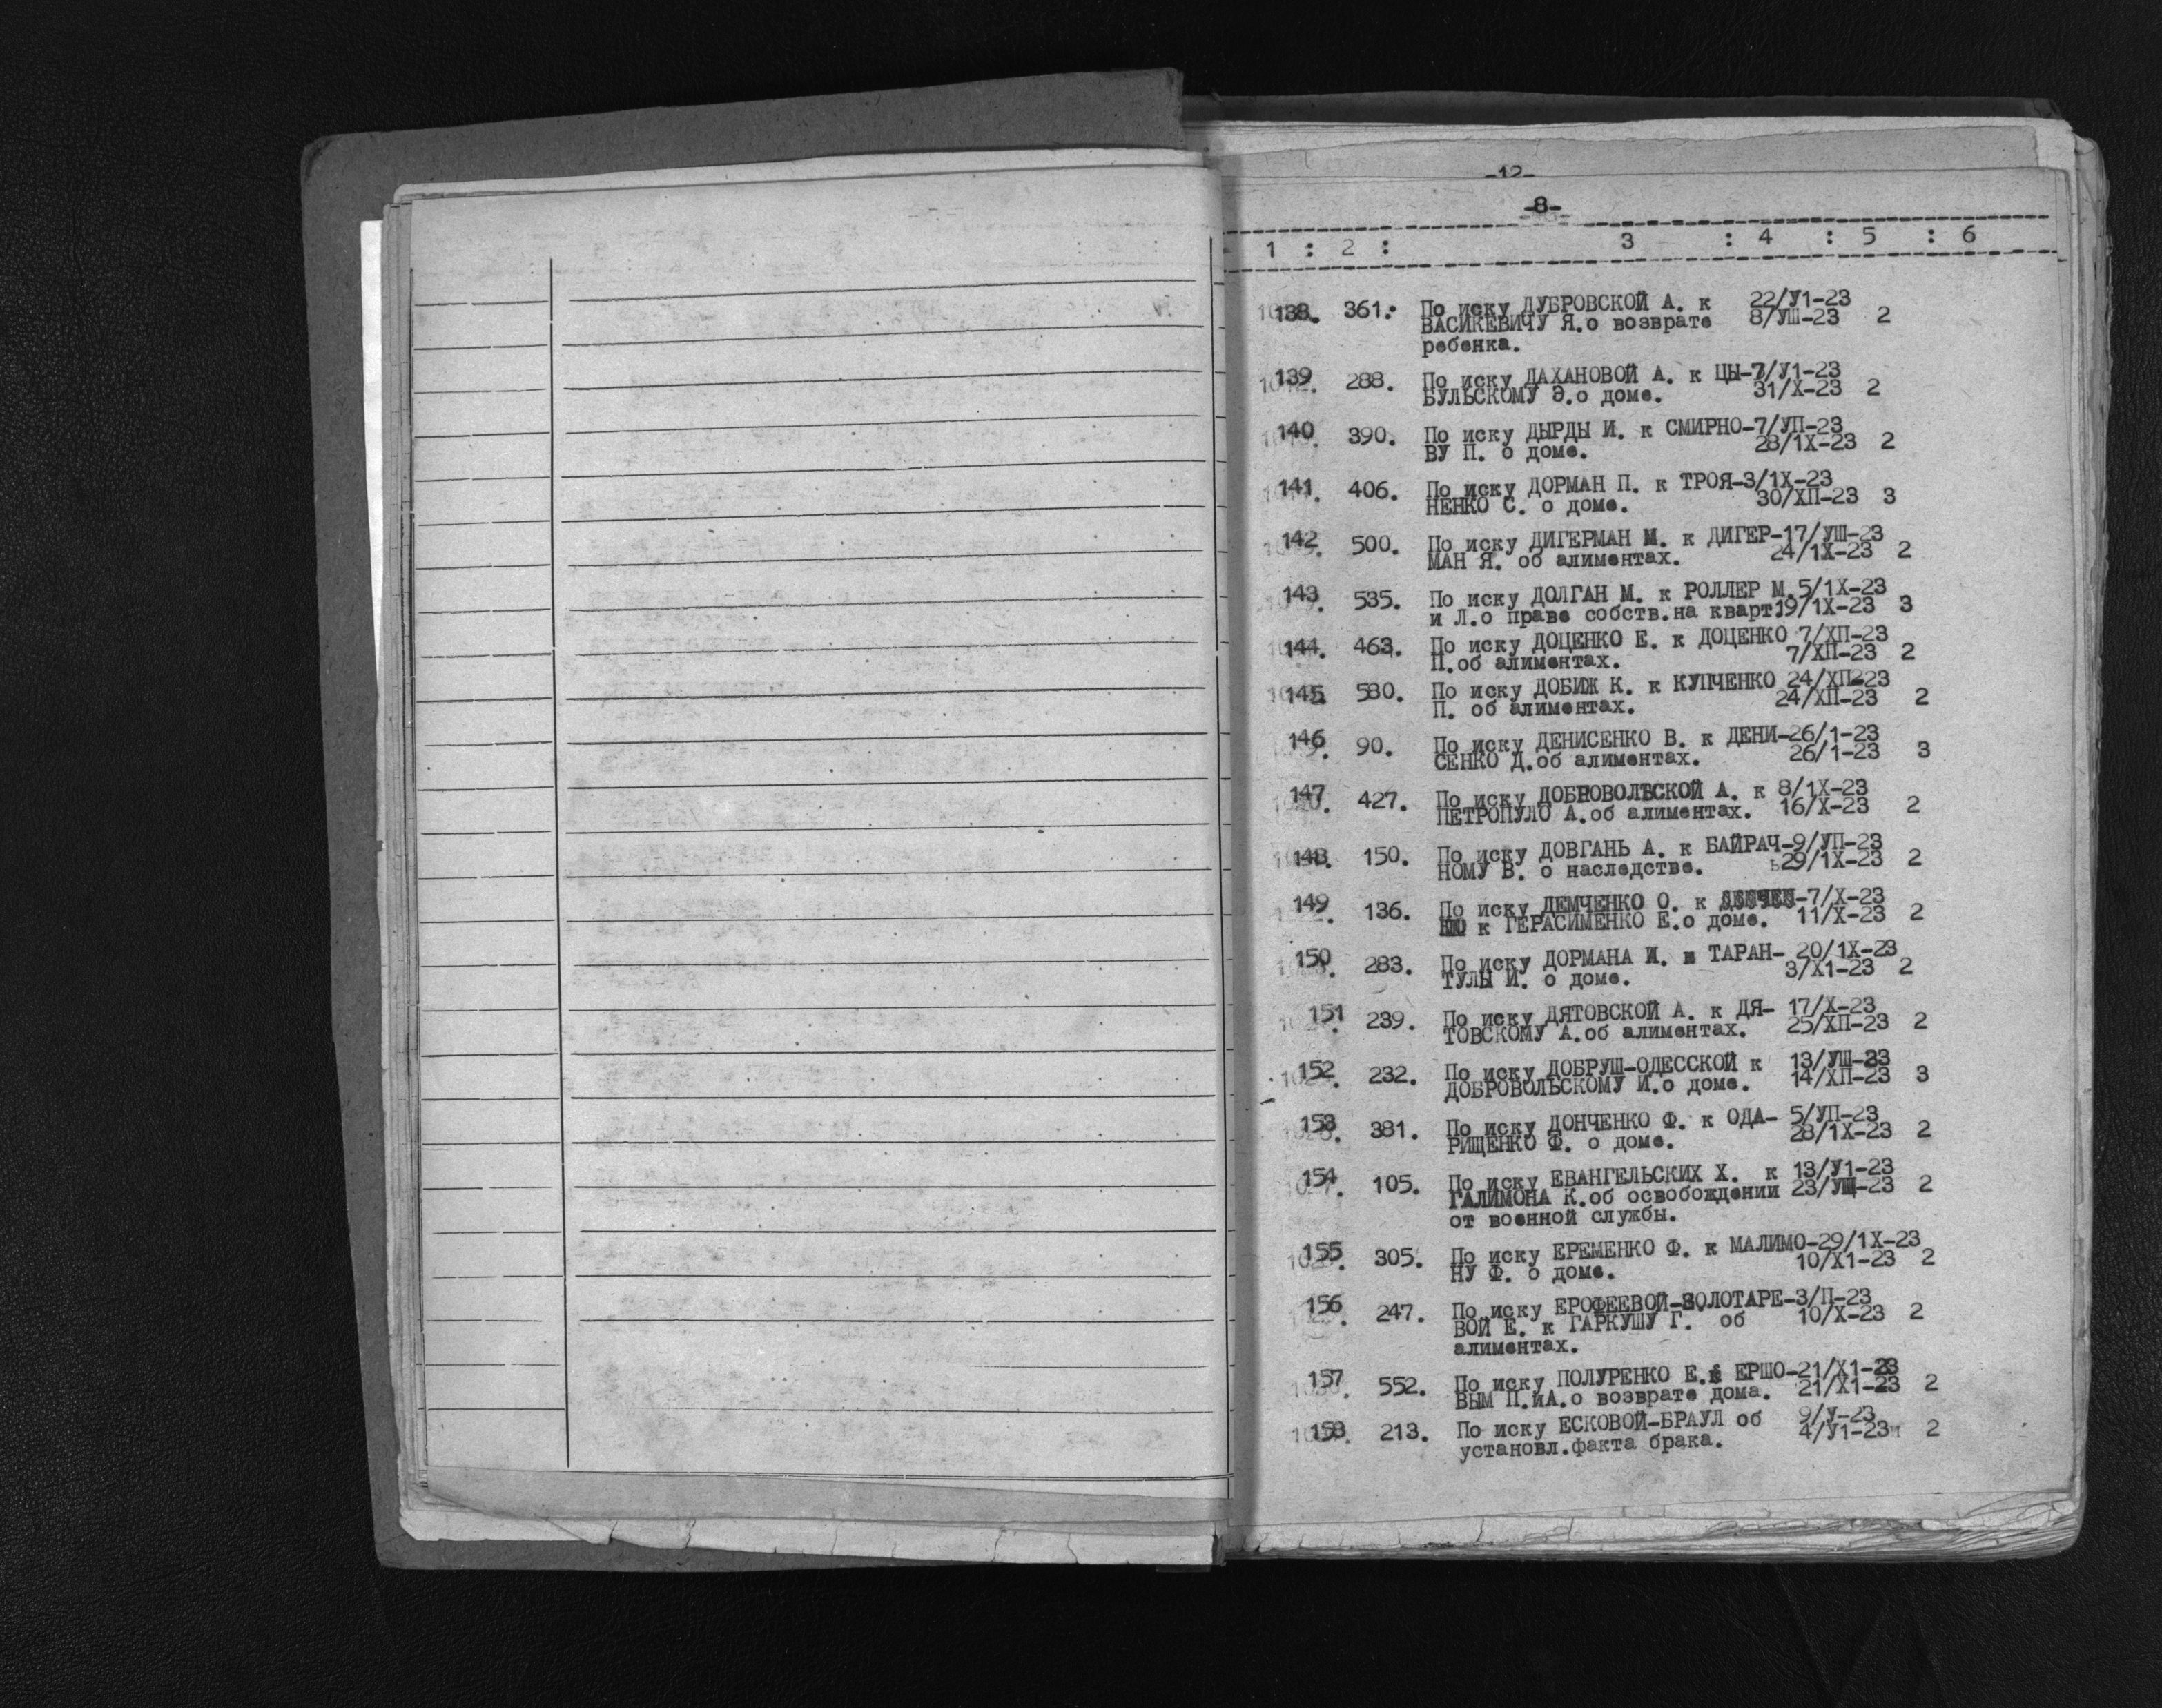 -12-
-8-
1 : 2 : 3 : 4 : 5 : 6
138. 361. По иску ДУБРОВСКОЙ А. к 22/У1-23
ВАСИКЕВИЧУ Я.о возврате 8/УШ-23 2
ребенка.
139 288. По иску ДАХАНОВОЙ А. к ЦЫ-7/У1-23
БУЛЬСКОМУ Э.о доме. 31/Х-23 2
140 390. По иску ДЫРДЫ И. к СМИРНО-7/УП-23
ВУ П. о доме. 28/1Х-23 2
141. 406. По иску ДОРМАН П. к ТРОЯ-3/1Х-23
НЕНКО С. о доме. 30/ХП-23 3
142 500. По иску ДИГЕРМАН М. к ДИГЕР-17/УШ-23
МАН Я. об алиментах. 24/1Х-23 2
143 535. По иску ДОЛГАН М. к РОЛЛЕР М.5/1Х-23
и Л.о праве собств.на кварт.19/1Х-23 3
144. 463. По иску ДОЦЕНКО Е. к ДОЦЕНКО 7/ХП-23
П.об алиментах. 7/ХП-23 2
145 580. По иску ДОБИЖ К. к КУПЧЕНКО 24/ХП-23
П. об алиментах. 24/ХП-23 2
146 90. По иску ДЕНИСЕНКО В. к ДЕНИ-26/1-23
СЕНКО Д.об алиментах. 26/1-23 3
147 427. По иску ДОБРОВОЛЬСКОЙ А. к 8/1Х-23
ПЕТРОПУЛО А.об алиментах. 16/Х-23 2
148. 150. По иску ДОВГАНЬ А. к БАЙРАЧ-9/УП-23
НОМУ В. о наследстве. 29/1Х-23 2
149 136. По иску ДЕМЧЕНКО О. к -7/Х-23
к ГЕРАСИМЕНКО Е.о доме. 11/Х-23 2
150 283. По иску ДОРМАНА И. и ТАРАН- 20/1Х-23
ТУЛЫ И. о доме. 3/Х1-23 2
151 239. По иску ДЯТОВСКОЙ А. к ДЯ- 17/Х-23
ТОВСКОМУ А.об алиментах. 25/ХП-23 2
152 232. По иску ДОБРУШ-ОДЕССКОЙ к 13/УШ-23
ДОБРОВОЛЬСКОМУ И.о доме. 14/ХП-23 3
153 381. По иску ДОНЧЕНКО Ф. к ОДА- 5/УП-23
РИЩЕНКО Ф. о доме. 28/1Х-23 2
154 105. По иску ЕВАНГЕЛЬСКИХ Х. к 13/У1-23
ГАЛИМОНА К.об освобождении 23/УШ-23 2
от военной службы.
155 305. По иску ЕРЕМЕНКО Ф. к МАЛИМО-29/1Х-23
НУ Ф. о доме. 10/Х1-23 2
156 247. По иску ЕРОФЕЕВОЙ-ЗОЛОТАРЕ-3/П-23
ВОЙ Е. к ГАРКУШУ Г. об 10/Х-23 2
алиментах.
157 552. По иску ПОЛУРЕНКО Е.к ЕРШО-21/Х1-23
ВЫМ П.иА.о возврате дома. 21/Х1-23 2
158. 213. По иску ЕСКОВОЙ-БРАУЛ об 9/У-23
установл.факта брака. 4/У1-23 2